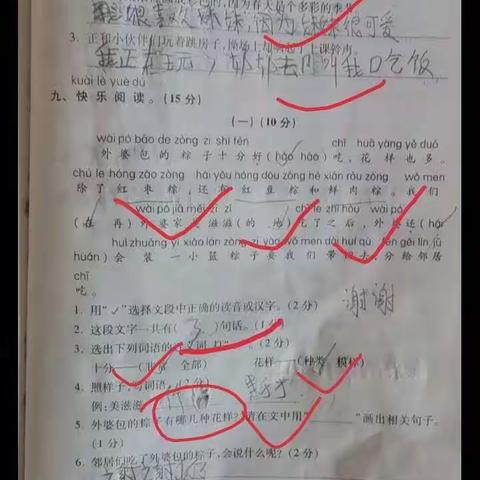 很喜欢妹妹,因为妹妹很可爱
3. 正和小伙伴们玩着跳房子,操场上却响起了上课铃声。
我正在玩,奶奶去叫我口吃饭
kuài lè yuè dú
九、快乐阅读。(15 分)
(一)(10 分)
wài pó bāo de zòng zi shí fēn chī huā yàng yě duō
外婆包的粽子十分好(hǎo hào)吃,花样也多。
chú le hóng zǎo zòng hái yǒu hóng dòu zòng hé xiān ròu zòng wǒ men
除了红枣粽,还有红豆粽和鲜肉粽。我们
wài pó jiā měi zī zī chī le zhī hòu wài pó
(在 再)外婆家美滋滋(的 地)吃了之后,外婆还(hái
huì zhuāng yì xiǎo lán zòng zi yào wǒ men dài huí qù fēn gěi lín jū
huán)会装一小篮粽子要我们带回去,分给邻居
chī
吃。
1. 用“✓”选择文段中正确的读音或汉字。(2 分)
谢谢
2. 这段文字一共有( 3 )句话。(1 分)
3. 选出下列词语的近义词,打“ ”。(2 分)
十分——(非常 全部) 花样——(种类 模样)
4. 照样子,写词语。(2 分)
例:美滋滋
5. 外婆包的粽子有哪几种花样?请在文中用“ ”画出相关句子。
(1 分)
6. 邻居们吃了外婆包的粽子,会说什么呢?(2 分)